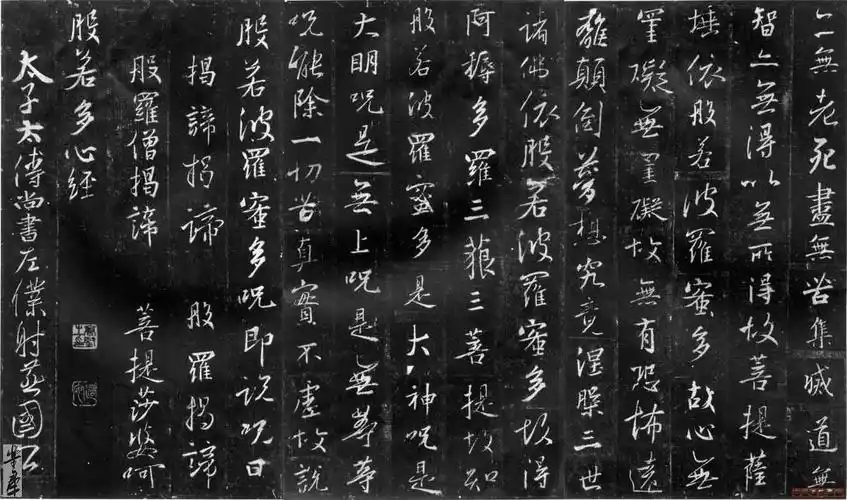 亦無老死盡無苦集滅道無
智亦無得以無所得故菩提薩
埵依般若波羅蜜多故心無
罣礙無罣礙故無有恐怖遠
離顛倒夢想究竟涅槃三世
諸佛依般若波羅蜜多故得
阿耨多羅三藐三菩提故知
般若波羅蜜多是大神呪是
大明呪是無上呪是無等等
呪能除一切苦真實不虛故說
般若波羅蜜多呪即說呪曰
揭諦揭諦 般羅揭諦
般羅僧揭諦 菩提莎婆呵
般若多心經
太子太傅尚書左僕射燕國公